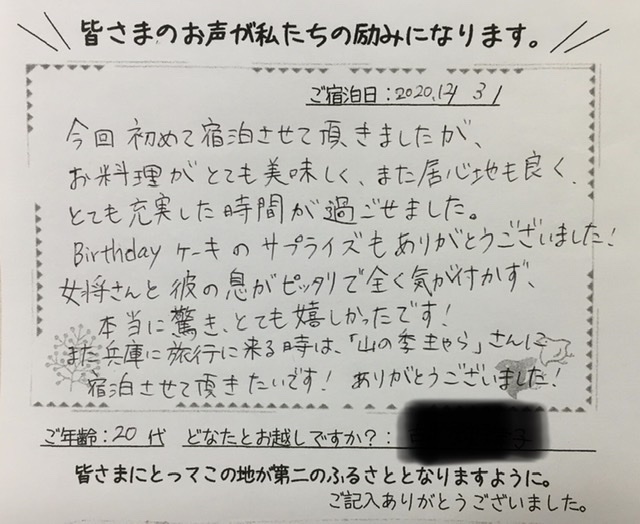 皆さまのお声が私たちの励みになります。
ご宿泊日：2020.12/31
今回初めて宿泊させて頂きましたが、
お料理がとても美味しく、また居心地も良く、
とても充実した時間が過ごせました。
Birthday ケーキのサプライズもありがとうございました！
女将さんと彼の息がピッタリで全く気が付かず、
本当に驚き、とても嬉しかったです！
また兵庫に旅行に来る時は、「山の季 さんに
宿泊させて頂きたいです！ ありがとうございました！
ご年齢：20 代 どなたとお越しですか？：
皆さまにとってこの地が第二のふるさととなりますように。
ご記入ありがとうございました。